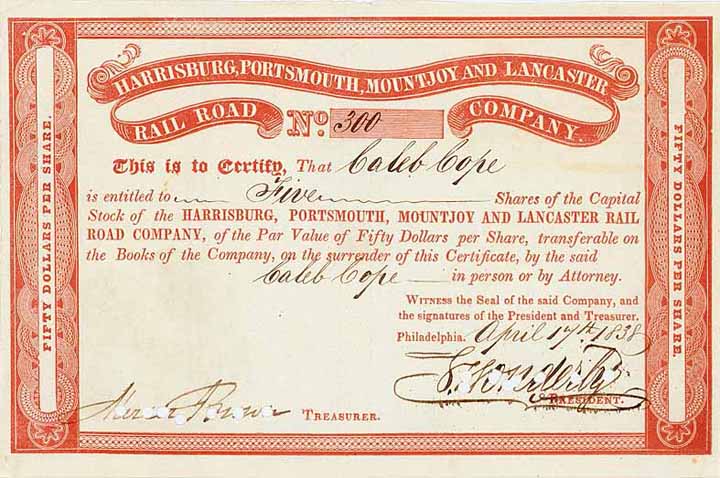 HARRISBURG, PORTSMOUTH, MOUNTJOY AND LANCASTER
RAIL ROAD COMPANY.
No. 300
This is to Certify, That Caleb Cope
is entitled to Five Shares of the Capital
Stock of the HARRISBURG, PORTSMOUTH, MOUNTJOY AND LANCASTER RAIL
ROAD COMPANY, of the Par Value of Fifty Dollars per Share, transferable on
the Books of the Company, on the surrender of this Certificate, by the said
Caleb Cope in person or by Attorney.
WITNESS the Seal of the said Company, and
the signatures of the President and Treasurer.
Philadelphia. April 17th. 1838
PRESIDENT.
TREASURER.
FIFTY DOLLARS PER SHARE.
FIFTY DOLLARS PER SHARE.